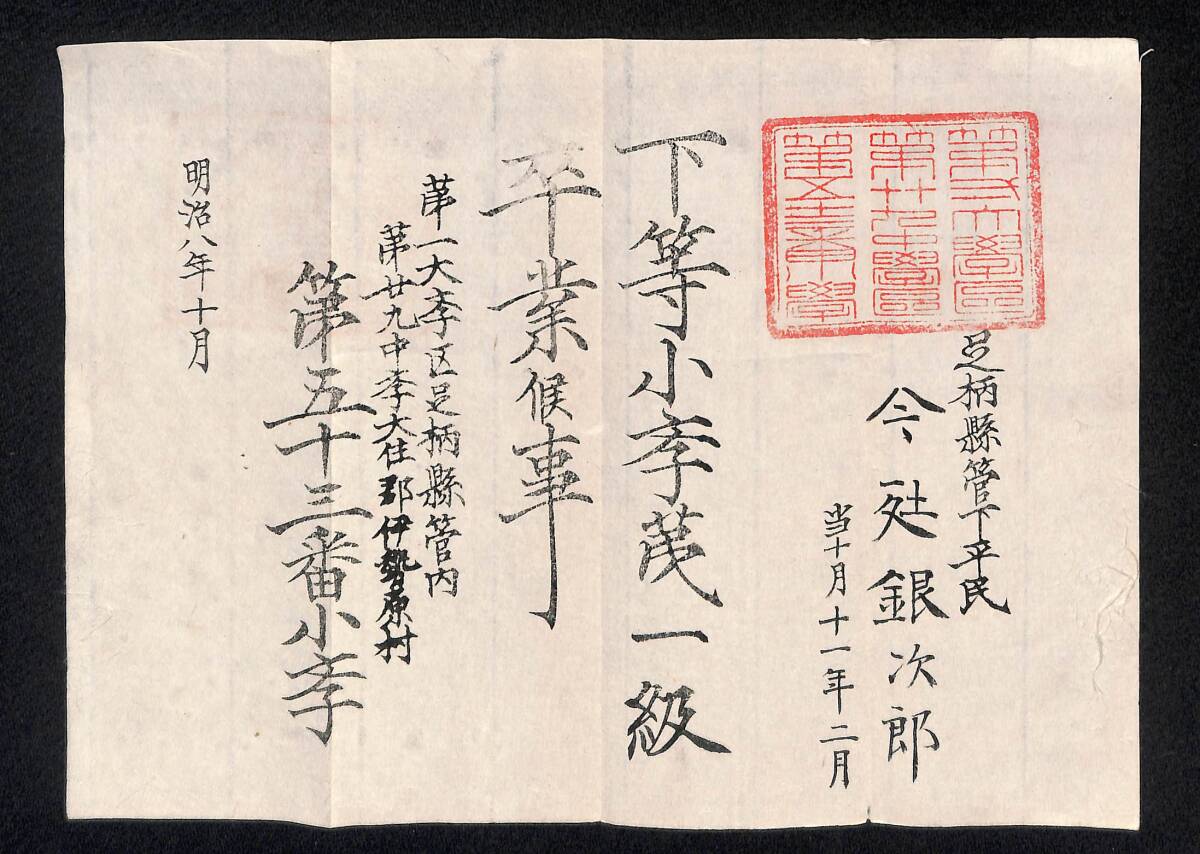 第弐大學區
第廿九中學區
第五十三番小學
足柄縣管下平民
今 銀次郎
当十月十一年二月
下等小斈第一級
卒業候事
苐一大斈区足柄縣管内
苐廿九中斈大住郡伊勢原村
第五十三番小斈
明治八年十月